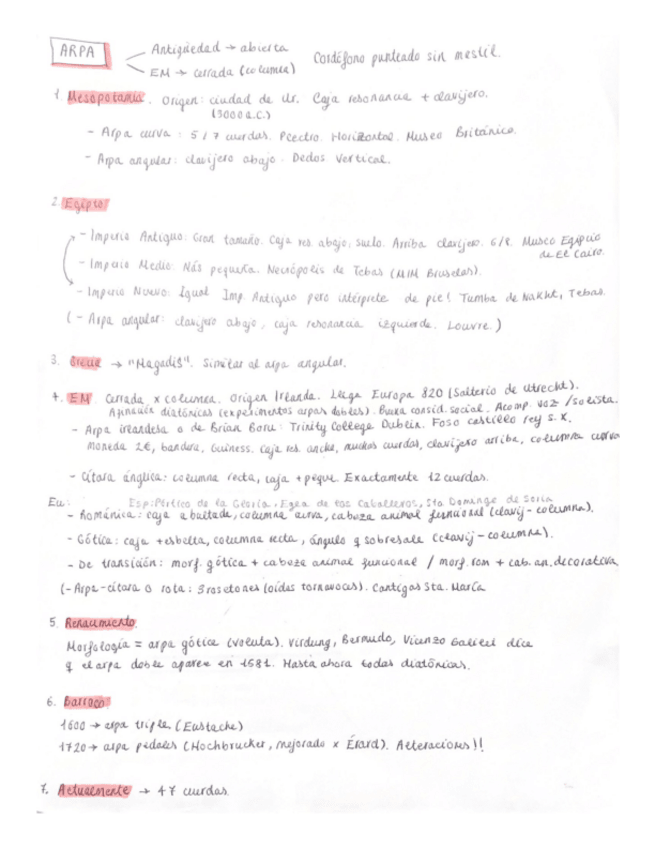 ARPA
Antigüedad → abierta
EM → cerrada (columna)
Cordófono punteado sin mástil.
1. Mesopotamia. Origen: ciudad de Ur. Caja resonancia + clavijero.
(3000 a.C.)
- Arpa curva: 5 / 7 cuerdas. Plectro. Horizontal. Museo Británico.
- Arpa angular: clavijero abajo. Dedos Vertical.
2. Egipto
- Imperio Antiguo: Gran tamaño. Caja res. abajo, suelo. Arriba clavijero. 6/8. Museo Egipcio
de El Cairo.
- Imperio Medio: Más pequeña. Necrópolis de Tebas (MIM Bruselas).
- Imperio Nuevo: Igual Imp. Antiguo pero intérprete de pie! Tumba de Nakht, Tebas.
(- Arpa angular: clavijero abajo, caja resonancia izquierda. Louvre.)
3. Grecia → "Magadis". Similar al arpa angular.
4. EM Cerrada, x columna. Origen Irlanda. Llega Europa 820 (Salterio de Utrecht).
Afinación diatónica (experimentos arpas dobles). Buena consid. social. Acomp. voz / solista.
- Arpa irlandesa o de Brian Boru: Trinity College Dublin. Foso castillo rey s. X.
Moneda 2€, bandera, Guiness. Caja res. ancha, muchas cuerdas, clavijero arriba, columna curva
- Cítara ánglica: columna recta, caja + peque. Exactamente 12 cuerdas.
Eu: Esp: Pórtico de la Gloria, Egea de los Caballeros, Sto Domingo de Soria
- Románica: caja abultada, columna curva, cabeza animal funcional (clavij - columna).
- Gótica: caja + esbelta, columna recta, ángulo q sobresale (clavij - columna).
- De transición: morf. gótica + cabeza animal funcional / morf. rom + cab. an. decorativa.
(- Arpa-cítara o rota: 3 rosetones (oídos tornavoces). Cantigas Sta. María
5. Renacimiento.
Morfología = arpa gótica (voluta). Virdung, Bermudo, Vicenzo Galilei dice
q el arpa doble aparece en 1581. Hasta ahora todas diatónicas.
6. Barroco
1600 → arpa triple (Eustache)
1720 → arpa pedales (Hochbrucker, mejorado x Érard). Alteraciones)!
7. Actualmente → 47 cuerdas